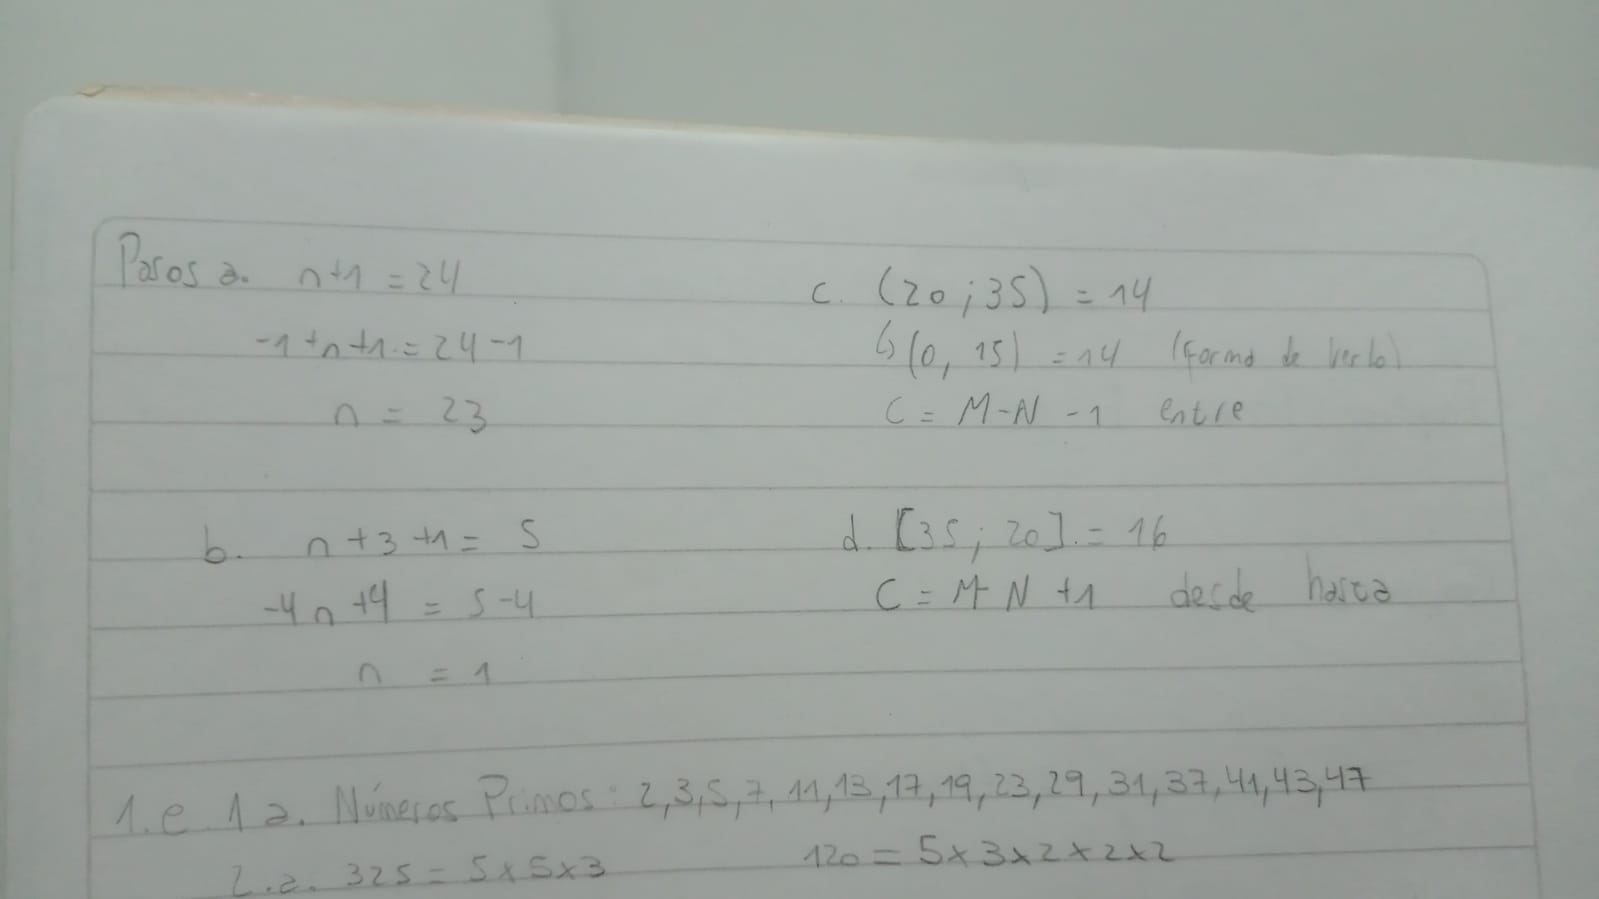 Pasos a. n+1 = 24
-1+n+1 = 24-1
n = 23
b. n+3+1 = 5
-4n+4 = 5-4
n = 1
c. (20 ; 35) = 14
↳ (0, 15) = 14 (forma de verlo)
C = M-N -1 entre
d. [35 ; 20] = 16
C = M-N +1 desde hasta
1.e 1a. Números Primos: 2,3,5,7,11,13,17,19,23,29,31,37,41,43,47
2.a. 325 = 5x5x3 120 = 5x3x2x2x2